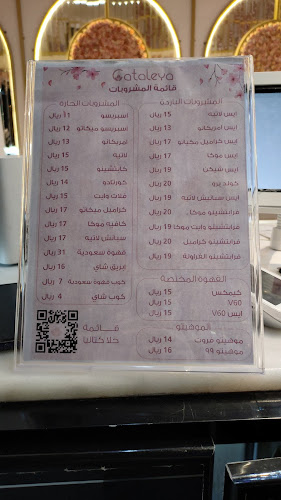 Cataleya
قائمة المشروبات
المشروبات الباردة
ايس لاتيه 15 ريال
ايس امريكانو 13 ريال
ايس كراميل مكياتو 17 ريال
ايس موكا 17 ريال
ايس شيكن 19 ريال
كولد برو 20 ريال
ايس سبانش لاتيه 19 ريال
فرابتشينو موكا 20 ريال
فرابتشينو وايت موكا 19 ريال
فرابتشينو كراميل 20 ريال
فرابتشينو الفراولة 19 ريال
القهوة المختصة
كيمكس 15 ريال
V60 15 ريال
ايس V60 15 ريال
الموهيتو
موهيتو فروت 14 ريال
موهيتو 99 16 ريال
المشروبات الحارة
اسبريسو 11 ريال
اسبريسو ميكاتو 12 ريال
امريكانو 13 ريال
لاتيه 15 ريال
كابتشينو 15 ريال
كورتادو 14 ريال
فلات وايت 15 ريال
كراميل ميكاتو 17 ريال
كافيه موكا 17 ريال
سبانش لاتيه 17 ريال
قهوة سعودية 31 ريال
ابريق شاي 16 ريال
كوب قهوة سعودية 7 ريال
كوب شاي 4 ريال
قائمة
حلا كتاليا